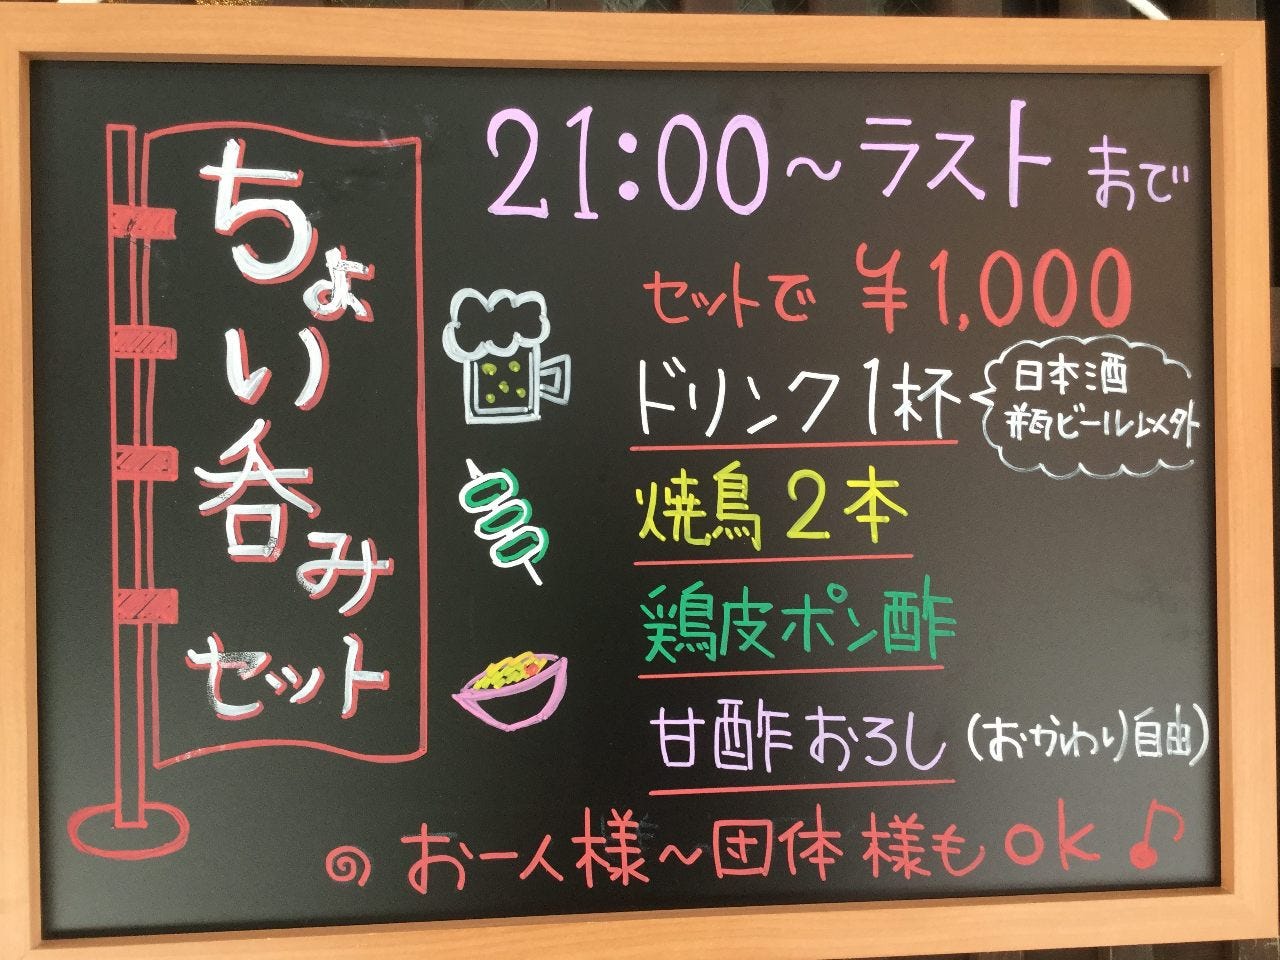 ちょい呑みセット
21:00～ラストまで
セットで ¥1,000
ドリンク1杯
日本酒
瓶ビール以外
焼鳥 2本
鶏皮ポン酢
甘酢おろし (おかわり自由)
お一人様～団体様も ok♪